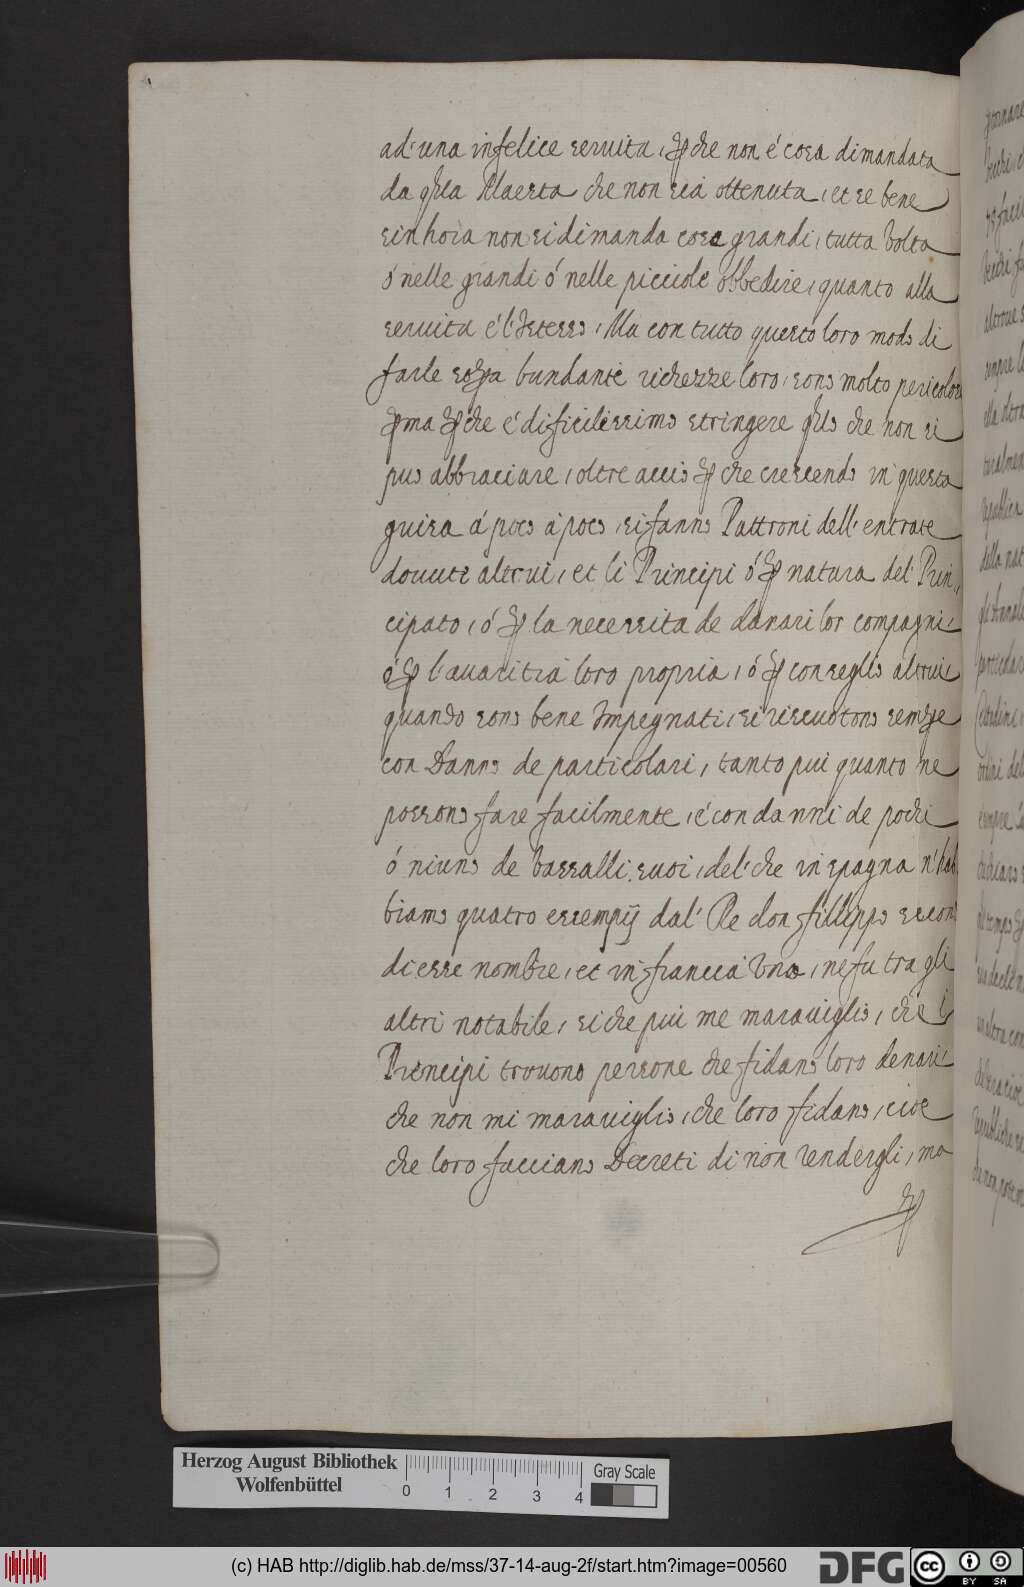 ad' una infelice seruitu, ꝑche non é cosa dimandata
da qlla Maesta che non sia ottenuta, et se bene
sinhora non si dimanda cose grandi, tutta volta
ó nelle grandi ó nelle picciole obbedire, quanto alla
seruitu é l'istesso, Ma con tutto questo loro modo di
farle soꝓa bundante richezze loro, sono molto pericolose
ꝑma ꝑche é dificilissimo stringere qllo che non si
puo abbraciare, oltre accio ꝑ che crescendo in questa
guisa á poco á poco, si fanno Pattroni dell' entrate
douute altrui, et li Principi ó ꝑ natura del' Prin,
cipato, ó ꝑ la necessita de danari lor compagni,
ó ꝑ l'auaritia loro propria, ó ꝑ conseglio altrui,
quando sono bene Impegnati, si riscuotono semꝑe
con Danno de particolari, tanto piu quanto ne
possono fare facilmente, é con danni de pochi
ó niuno de vassalli suoi, del' che in spagna n' hab
biamo quatro essempij dal' Re don fillippo secon
di esse nombre, et in francia Vno, ne fu tra gli
altri notabile, si che piu me marauiglio, che i
Principi trouono persone che fidano loro denari
che non mi marauiglio, che loro fidano, cioe
che loro facciano Decreti di non rendergli, ma
ꝑ
Herzog August Bibliothek
Wolfenbüttel
0 1 2 3 4
Gray Scale
(c) HAB http://diglib.hab.de/mss/37-14-aug-2f/start.htm?image=00560
DFG
cc BY SA